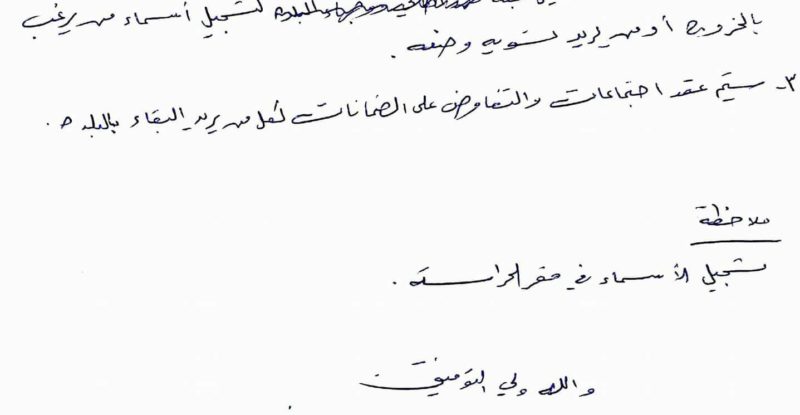 لتسجيل أسماء من يرغب
بالخروج أو من يريد تسوية وضعه .
٣- سيتم عقد اجتماعات والتفاوض على الضمانات لكل من يريد البقاء بالبلدة .
ملاحظة
تسجيل الأسماء في مقر الحراسة .
والله ولي التوفيق